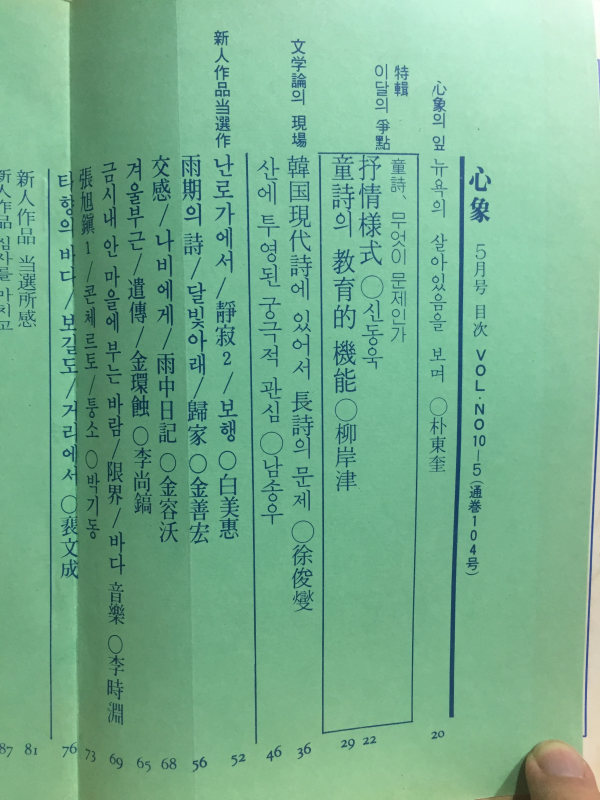 心象 5月号 目次 VOL·NO10-5(通巻104号)
心象의 잎 뉴욕의 살아있음을 보며 ○朴東奎 20
特輯
이달의 爭點
童詩, 무엇이 문제인가
抒情様式 ○신동욱 22
童詩의 教育的 機能 ○柳岸津 29
文学論의 現場 韓国現代詩에 있어서 長詩의 문제 ○徐俊燮 36
산에 투영된 궁극적 관심 ○남송우 46
新人作品当選作 난로가에서/靜寂2/보행 ○白美惠 52
雨期의 詩/달빛아래/歸家 ○金善宏 56
交感/나비에게/雨中日記 ○金容沃 68
겨울부근/遺傳/金環蝕 ○李尚鎬 65
금시내 안 마을에 부는 바람/限界/바다 音樂 ○李時淵 69
張旭鎭1/콘체르토/퉁소 ○박기동 73
타향의 바다/보길도/거리에서 ○裵文成 76
新人作品 当選所感 81
新人作品 심사를 마치고 87